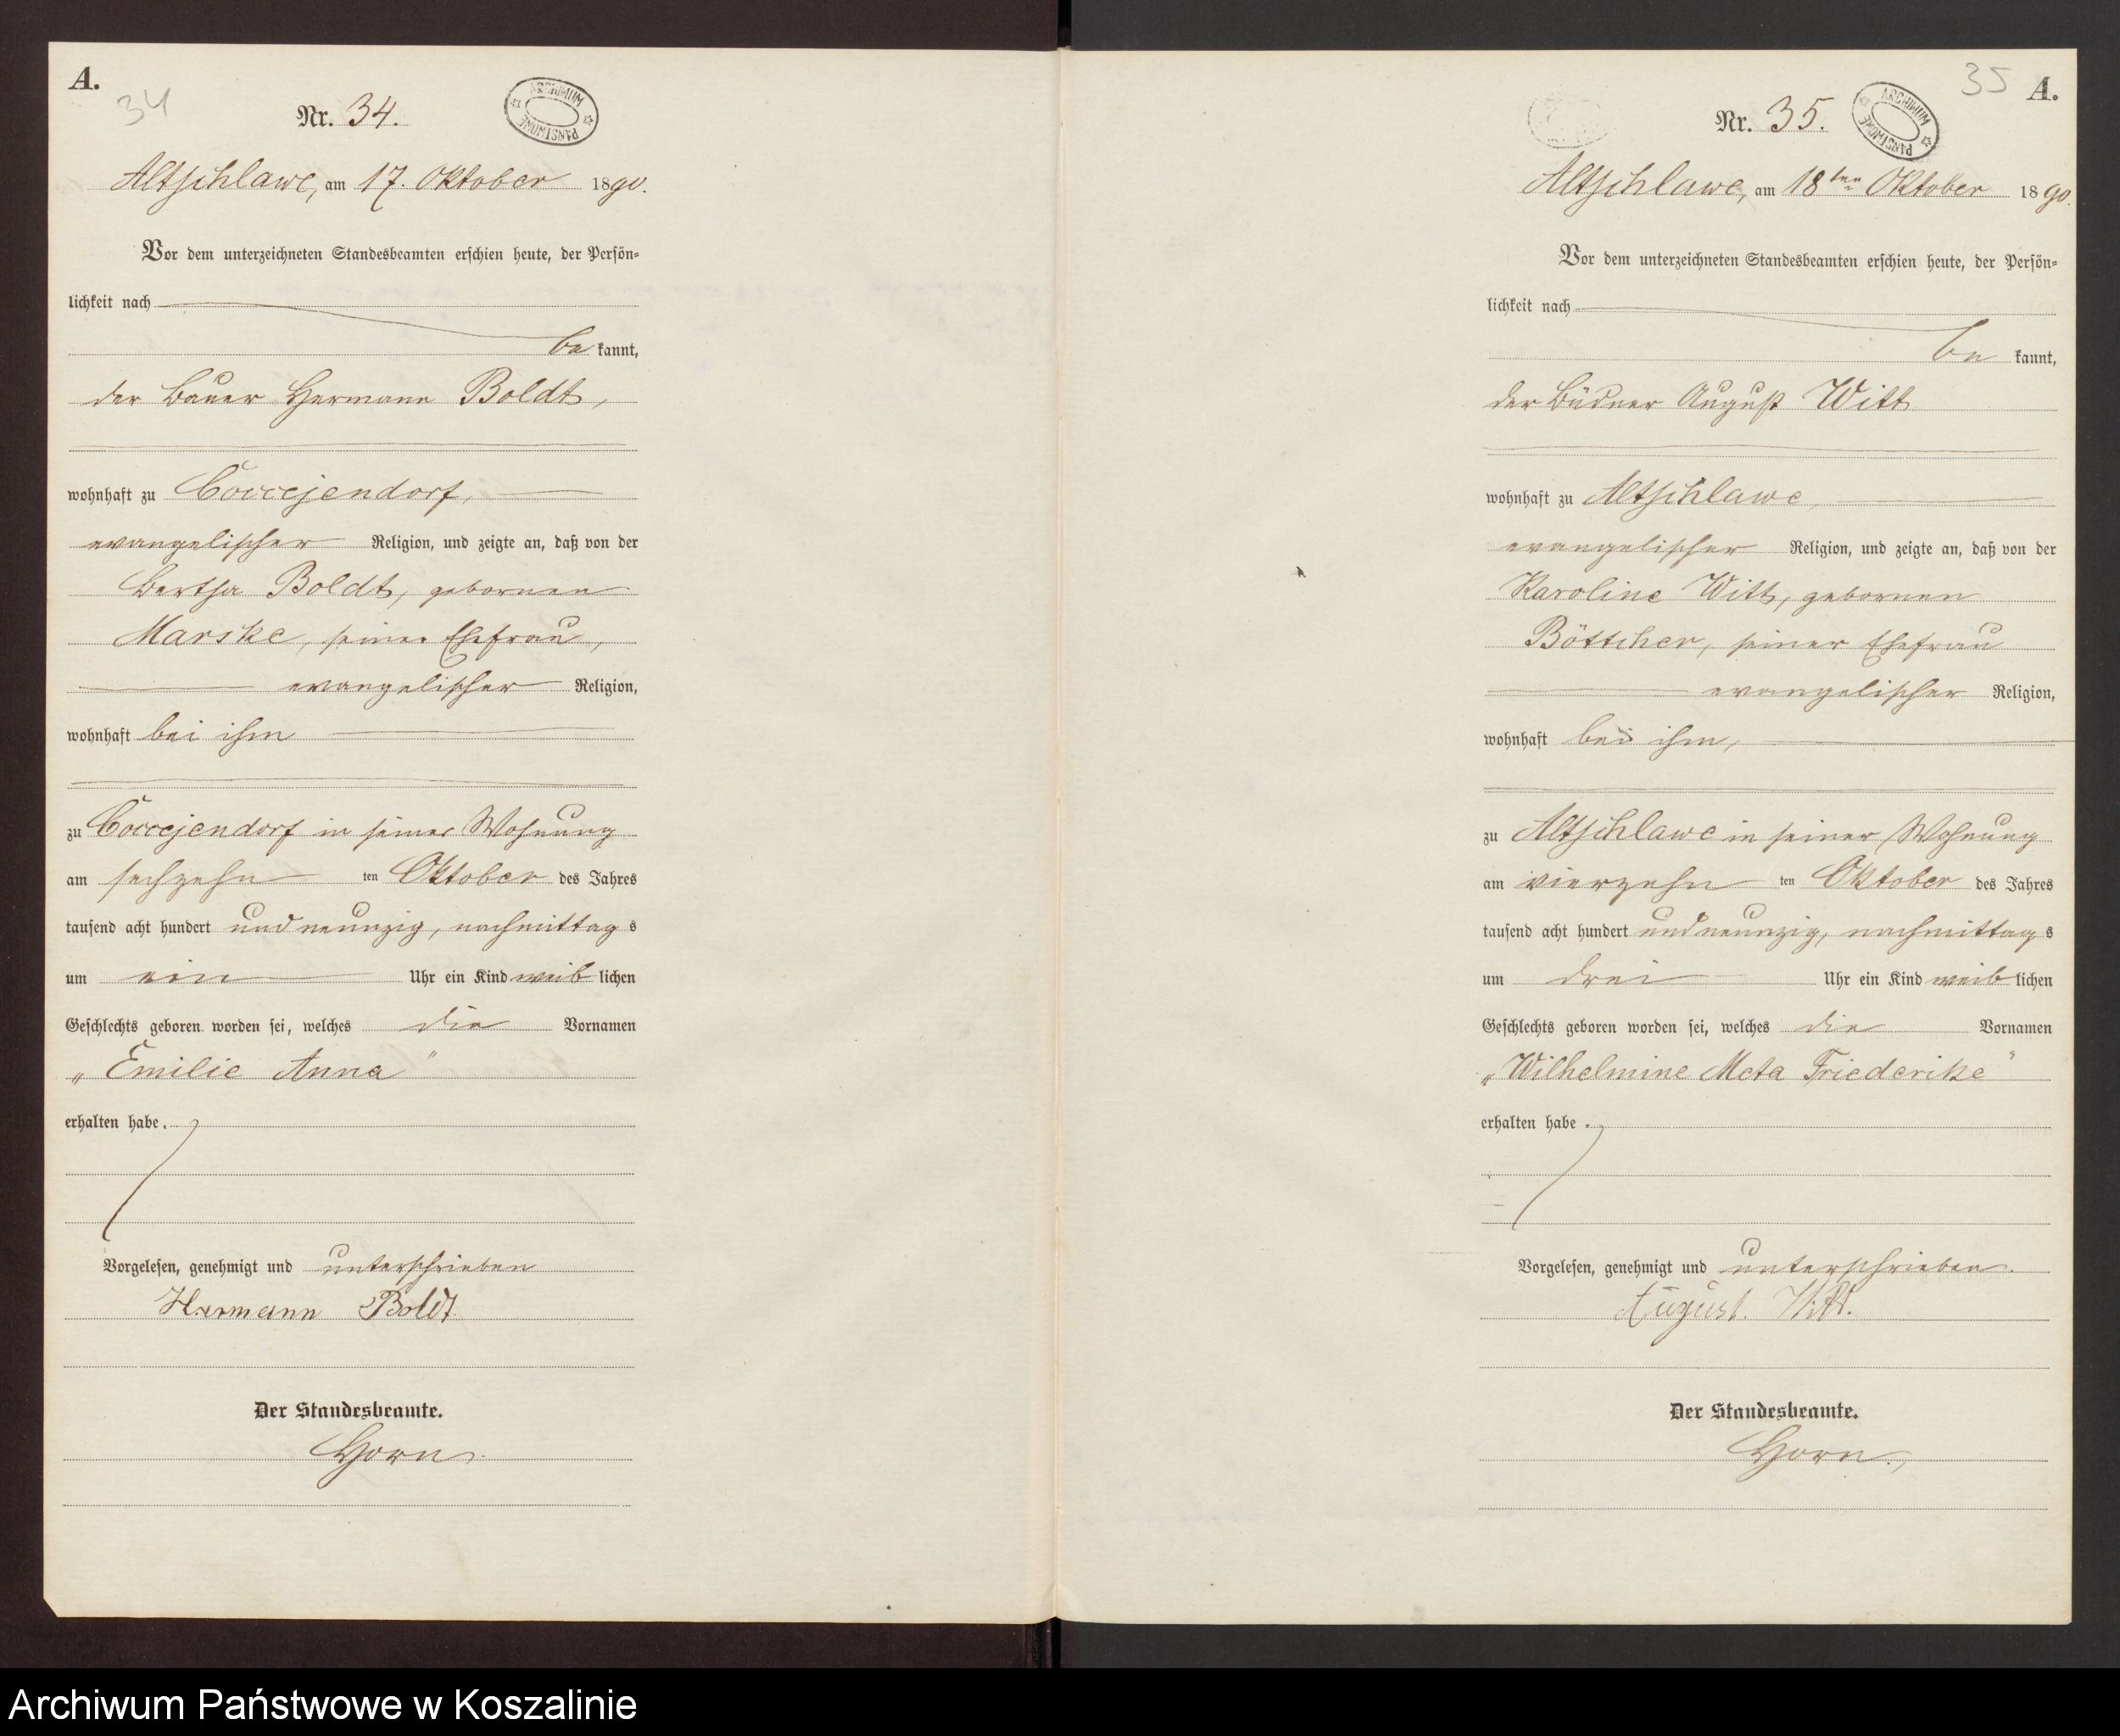 A.
34
Nr. 34.
ARCHIWUM PAŃSTWOWE
Altschlawe, am 17. Oktober 1890.
Vor dem unterzeichneten Standesbeamten erschien heute, der Persön-
lichkeit nach
be kannt,
der Bauer Hermann Boldt,
wohnhaft zu Coccejendorf,
evangelischer Religion, und zeigte an, daß von der
Bertha Boldt, gebornen
Marske, seiner Ehefrau,
evangelischer Religion,
wohnhaft bei ihm
zu Coccejendorf in seiner Wohnung
am sechzehn ten Oktober des Jahres
tausend acht hundert und neunzig, nachmittag s
um ein Uhr ein Kind weib lichen
Geschlechts geboren worden sei, welches die Vornamen
„Emilie Anna"
erhalten habe.
Vorgelesen, genehmigt und unterschrieben
Hermann Boldt
Der Standesbeamte.
Horn.
35
A.
Nr. 35.
ARCHIWUM PAŃSTWOWE
Altschlawe, am 18ten Oktober 1890.
Vor dem unterzeichneten Standesbeamten erschien heute, der Persön-
lichkeit nach
be kannt,
der Büdner August Witt
wohnhaft zu Altschlawe,
evangelischer Religion, und zeigte an, daß von der
Karoline Witt, gebornen
Böttcher, seiner Ehefrau
evangelischer Religion,
wohnhaft bei ihm,
zu Altschlawe in seiner Wohnung
am vierzehn ten Oktober des Jahres
tausend acht hundert und neunzig, nachmittag s
um drei Uhr ein Kind weib lichen
Geschlechts geboren worden sei, welches die Vornamen
„Wilhelmine Meta Friederike"
erhalten habe.
Vorgelesen, genehmigt und unterschrieben.
August. Witt.
Der Standesbeamte.
Horn.
Archiwum Państwowe w Koszalinie